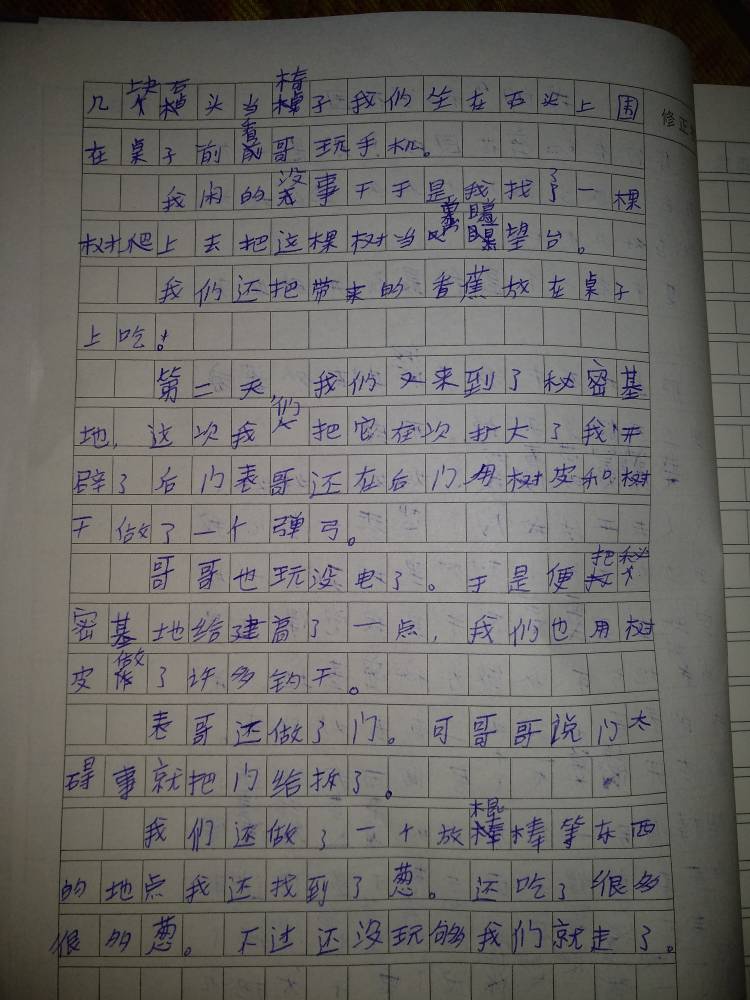 几块石头当椅子我们坐在石头上围
在桌子前看哥哥玩手机。
我闲的没事干于是我找了一棵
树爬上去把这棵树当瞭望台。
我们还把带来的香蕉放在桌子
上吃。
第二天,我们又来到了秘密基
地,这次我们把它在次扩大了我开
辟了后门表哥还在后门用树皮和树
干做了一个弹弓。
哥哥也玩没电了。于是便把秘
密基地给建高了一点,我们也用树
皮做了许多钓干。
表哥还做了门。可哥哥说门太
碍事就把门给拆了。
我们还做了一个放棍棒等东西
的地点我还找到了葱。还吃了很多
很多葱。不过还没玩够我们就走了。
修正